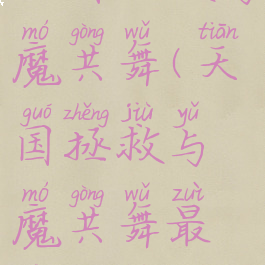 mó gòng wǔ tiān
魔共舞(天
guó zhěng jiù yǔ
国拯救与
mó gòng wǔ zuì
魔共舞最